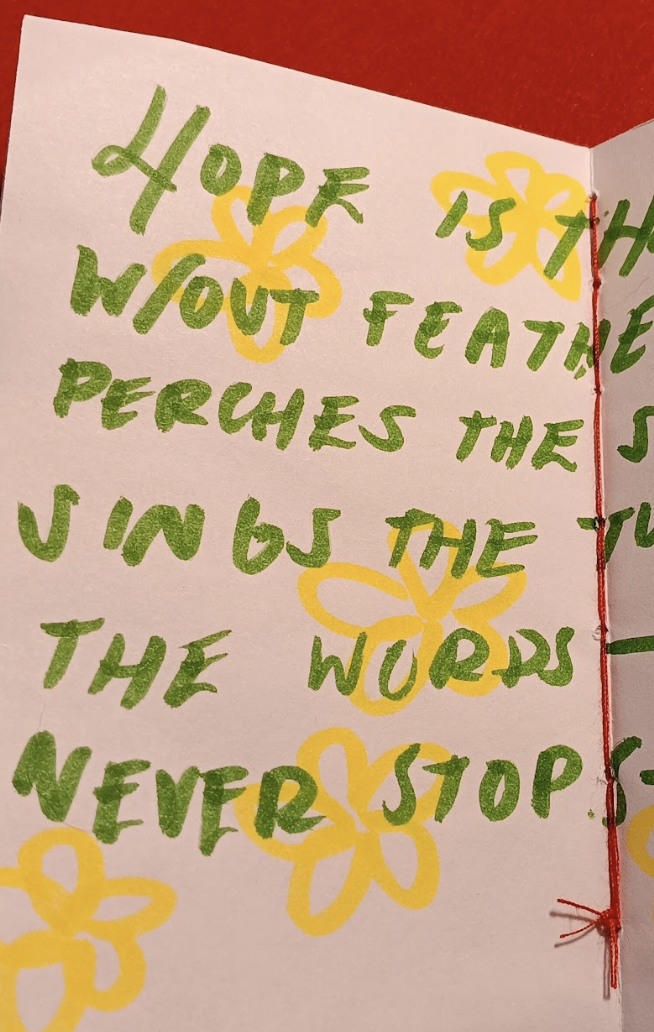 HOPE IS TH
W/OUT FEATHE
PERCHES THE S
SINGS THE TU
THE WORDS —
NEVER STOPS